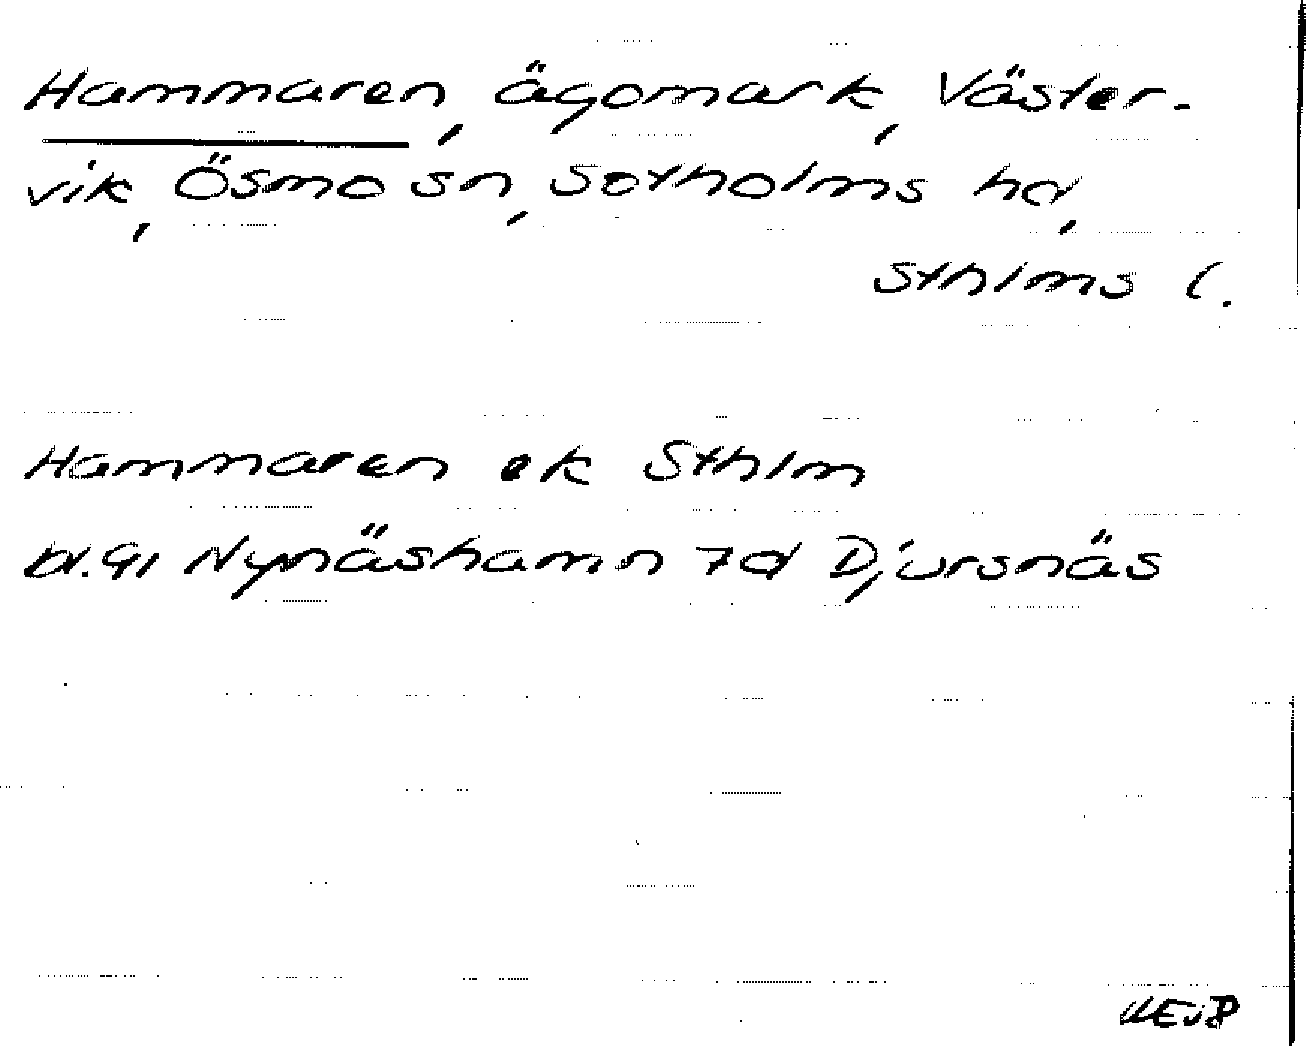 Hammaren, ägomark, Väster-
vik, Ösmo sn, Sotholms hd,
Sthlms l.
Hammaren ek Sthlm
bl. 91 Nynäshamn 7d Djursnäs